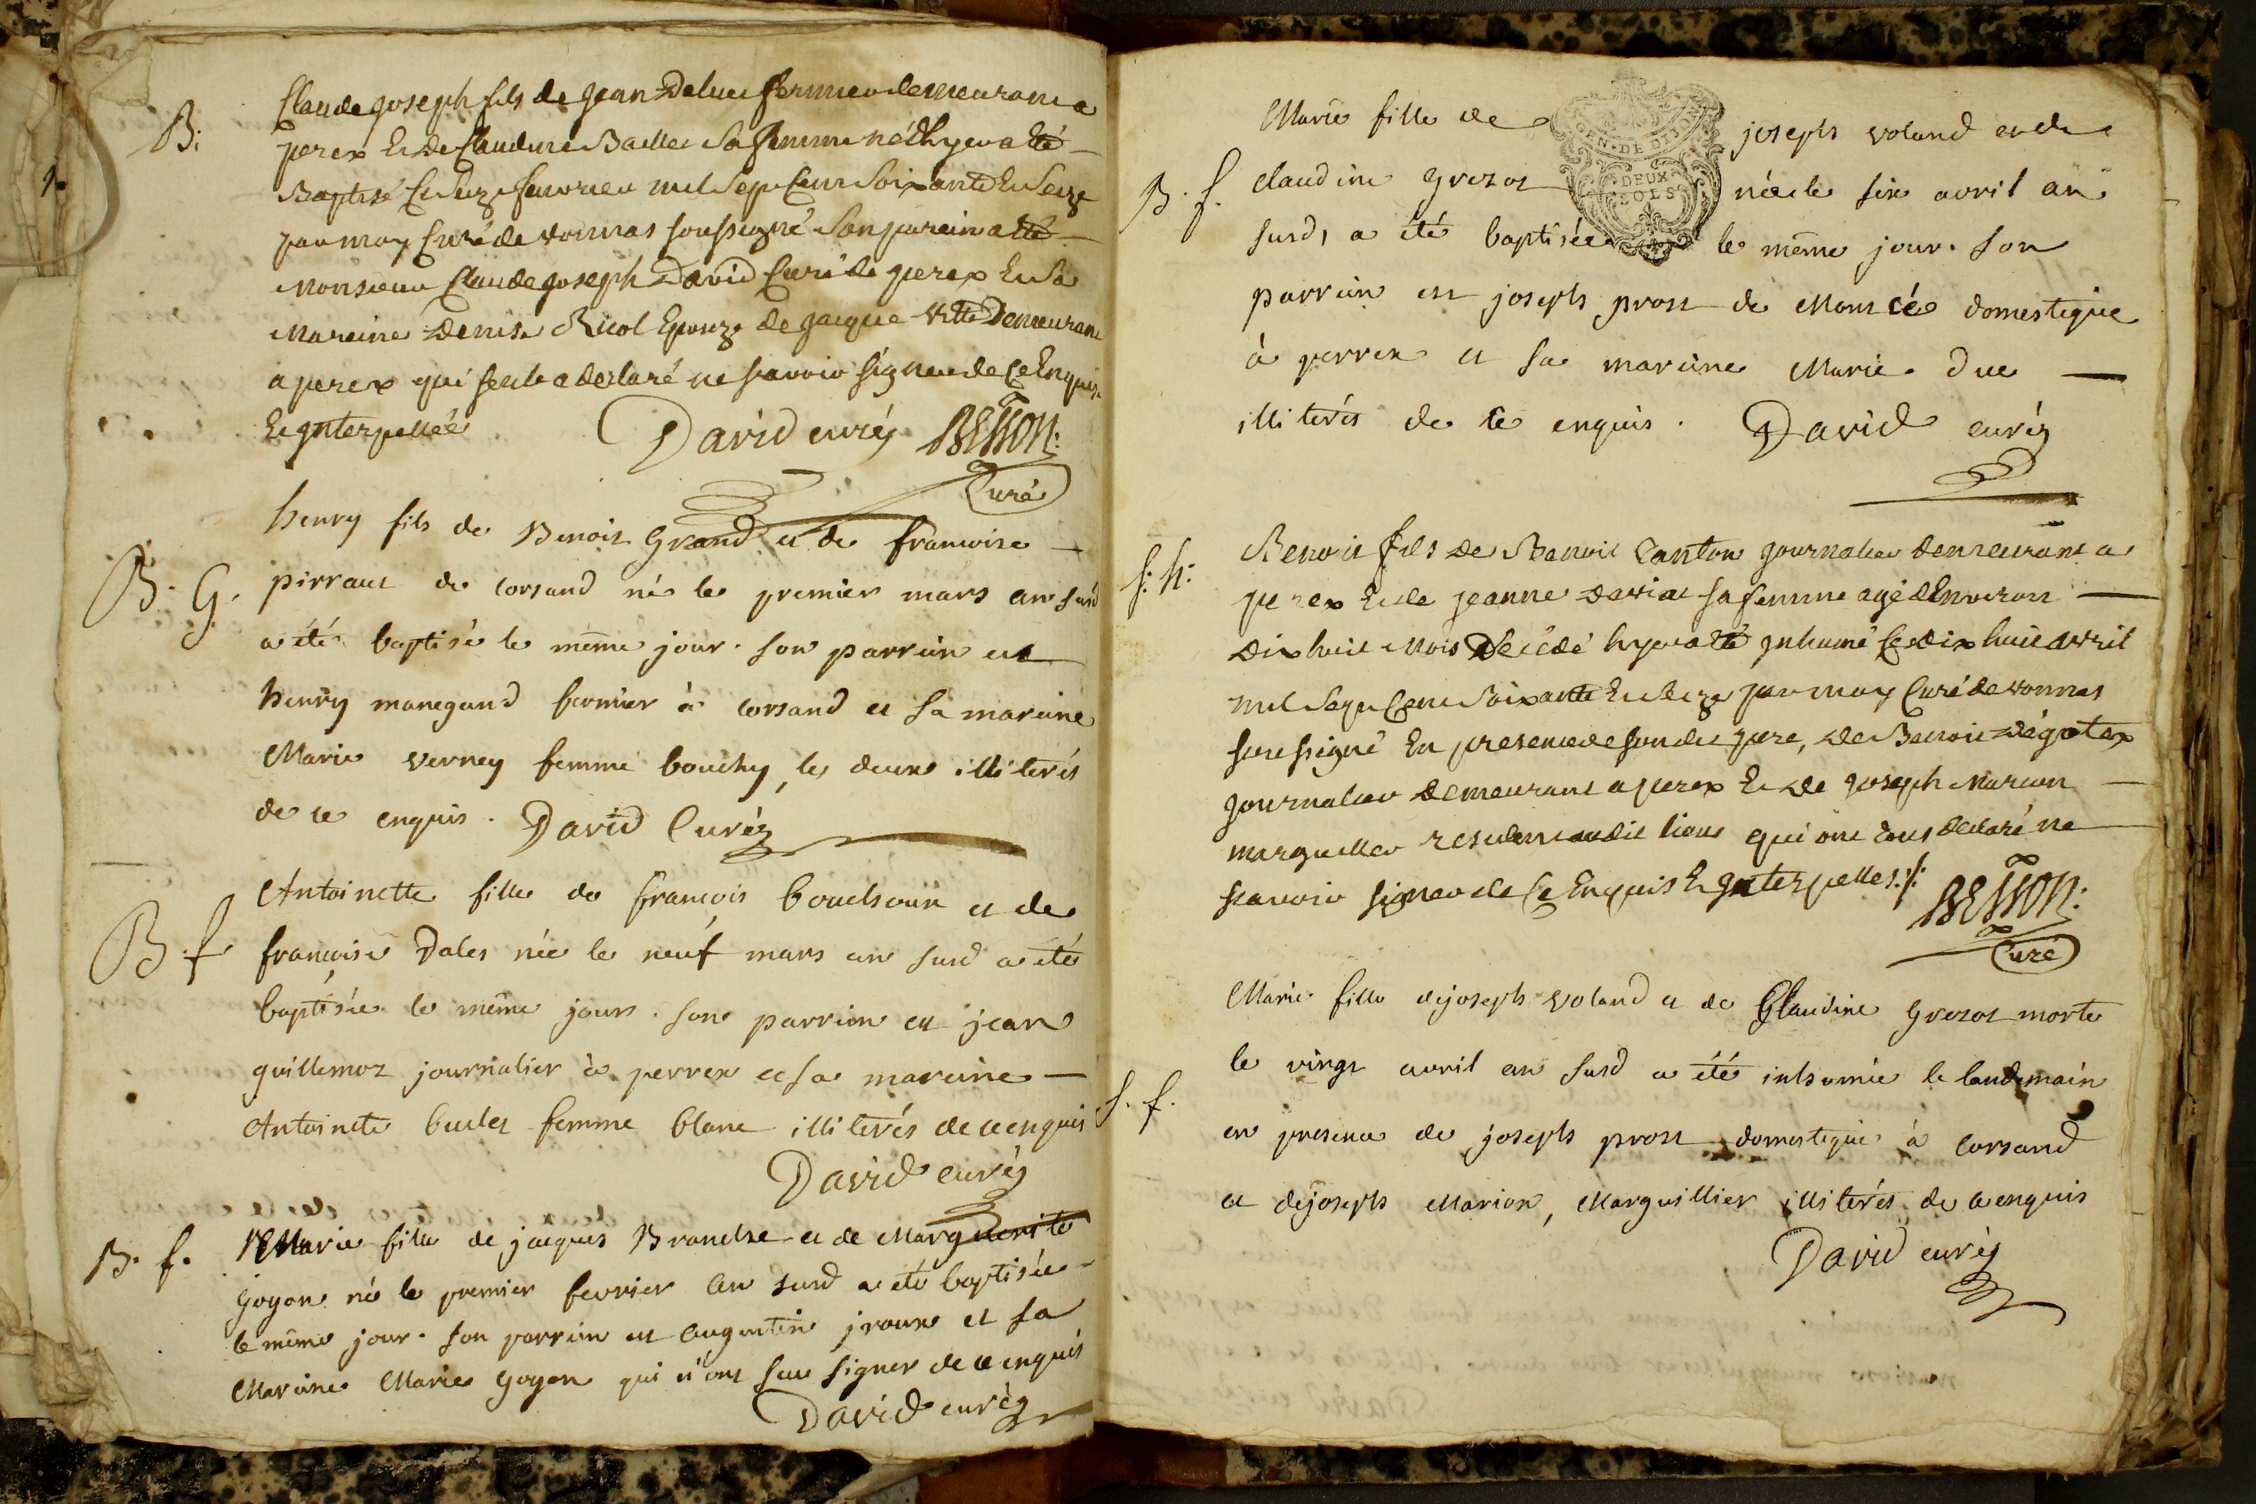 B:
Claude joseph fils de jean Deluce fermier demeurant a
perex Et De Claudine Baillet Sa femme né d'hyer a été
Baptisé Ce Seize fevrier mil Sept Cent Soixante Et Seize
par moy Curé de vonnas soussigné Son parein a été
Monsieur Claude joseph David Curé de perex Et Sa
Mareine Denise Ricol Epouze de jacque vitte Demeurant
a perex qui seule a declaré ne scavoir signer de Ce Enquise
Et jnterpellée
David curéz BESSON:
Curé
B. G.
henry fils de Benoit Grand et de francoise
pirraut de corsand né le premier mars an susd
a été baptisé le même jour. son parrein est
henry manegand fermier à corsand et sa mareine
Marie verney femme bouchy, les deux illiterés
de ce enquis. David Curéz
B. f
Antoinette fille de françois bouchoux et de
françoise Dales née le neuf mars an susd a été
baptisée le même jours. son parrein est jean
guillemoz journalier à perrex et sa mareine
Antoinette burlet femme blanc illiterés de ce enquis
David curéz
B. f.
Marie fille de jacques Branche et de Marguerite
Goyon né le premier fevrier an susd a été baptisée
le même jour. son parrein est augustin jroux et sa
Mareine Marie Goyon qui n'ont sceu signer de ce enquis
David curéz
GEN. DE DIJON
DEUX
SOLS
B. f.
Marie fille de joseph voland et de
claudine Grezot née le six avril an
susd, a été baptisée le même jour. son
parrein est joseph prost de Moncé domestique
à perrex et sa mareine Marie Duc
illiterés de ce enquis. David curéz
S: h:
Benoit fils de Benoit Canton journalier demeurant a
perex Et de jeanne Daviat sa femme agé d'Environ
Dix huit Mois Décédé hyer a été jnhumé Ce dix huit avril
mil Sept Cent Soixante Et Seize par moy Curé de vonnas
soussigné En presence de son dit pere, de Benoit Dégotex
journalier demeurant a perex Et de joseph Marion
marguiller resident audit lieux qui ont tous declaré ne
scavoir signer de Ce Enquis Et jnterpelles./.
BESSON:
Curé
S. f.
Marie fille de joseph voland et de Claudine Grezot morte
le vingt avril an susd a été inhumée le landemain
en presence de joseph prost domestique à corsand
et de joseph Marion, Marguillier illiterés de ce enquis
David curéz